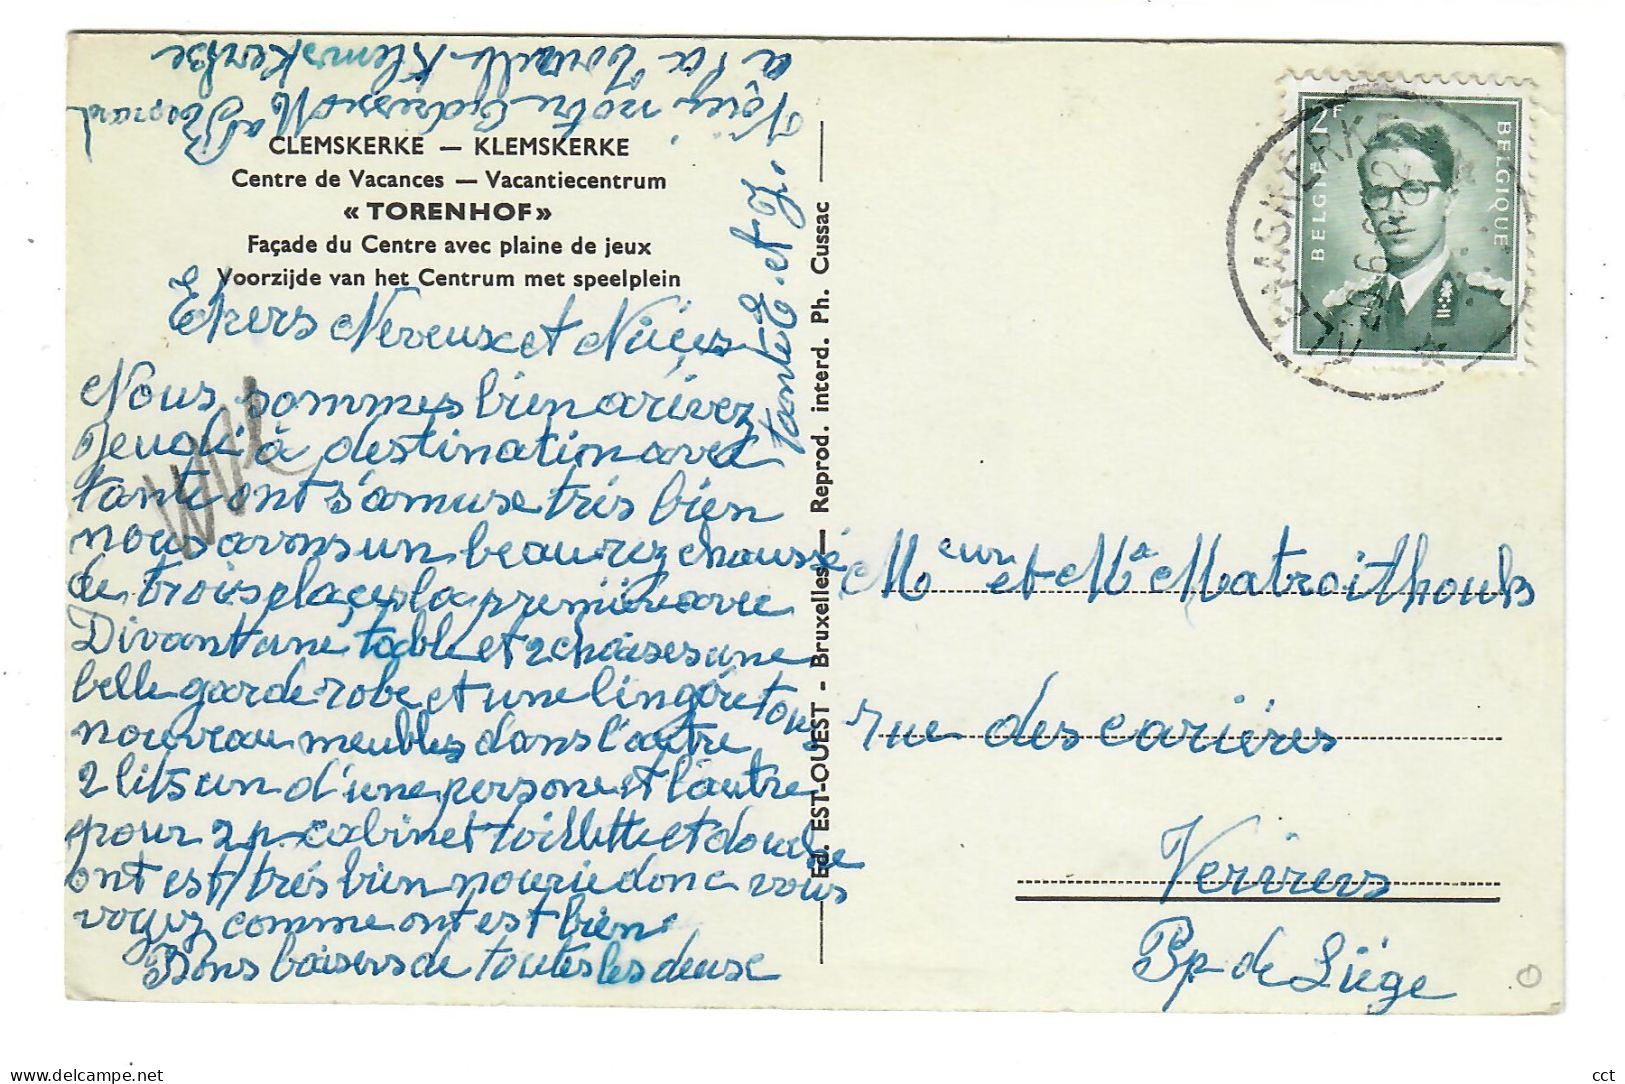 CLEMSKERKE — KLEMSKERKE
Centre de Vacances — Vacantiecentrum
« TORENHOF »
Façade du Centre avec plaine de jeux
Voorzijde van het Centrum met speelplein
Chers Neveux et Nièces
Nous sommes bien arivez
jeudi à destination avec
tante ont s'amuse très bien
nous avons un beau rez chaussé
de trois places la première avec
Divant une table et 2 chaises une
belle garde robe et une lingére tous
nouveau meubles dans l'autre
2 lits un d'une persone et l'autre
pour 2 p. cabinet toillette et douche
ont est très bien nourie donc vous
voyez comme ont est bien
Bons baisers de toutes les deuse
tante E. et J.
Voici notre adresse Ma
a la Klemskerke
Ed. EST-OUEST - Bruxelles — Reprod. interd. Ph. Cussac
BELGIE BELGIQUE
2F
KLEMSKERKE
Mr et Ma Matroithouls
rue des carières
Verviers
Bp de Liège
cct
delcampe.net